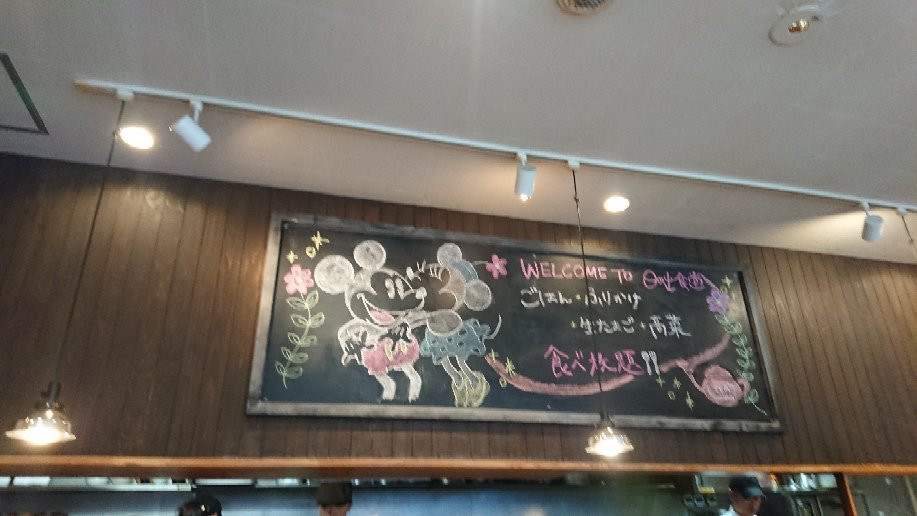 WELCOME TO 食遊
ごはん・ふりかけ
・生たまご・高菜
食べ放題!!